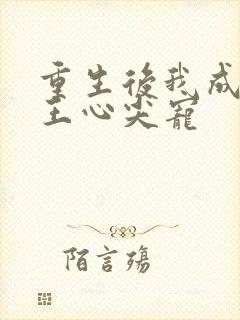 重生後我成
王心尖寵
陌言殤